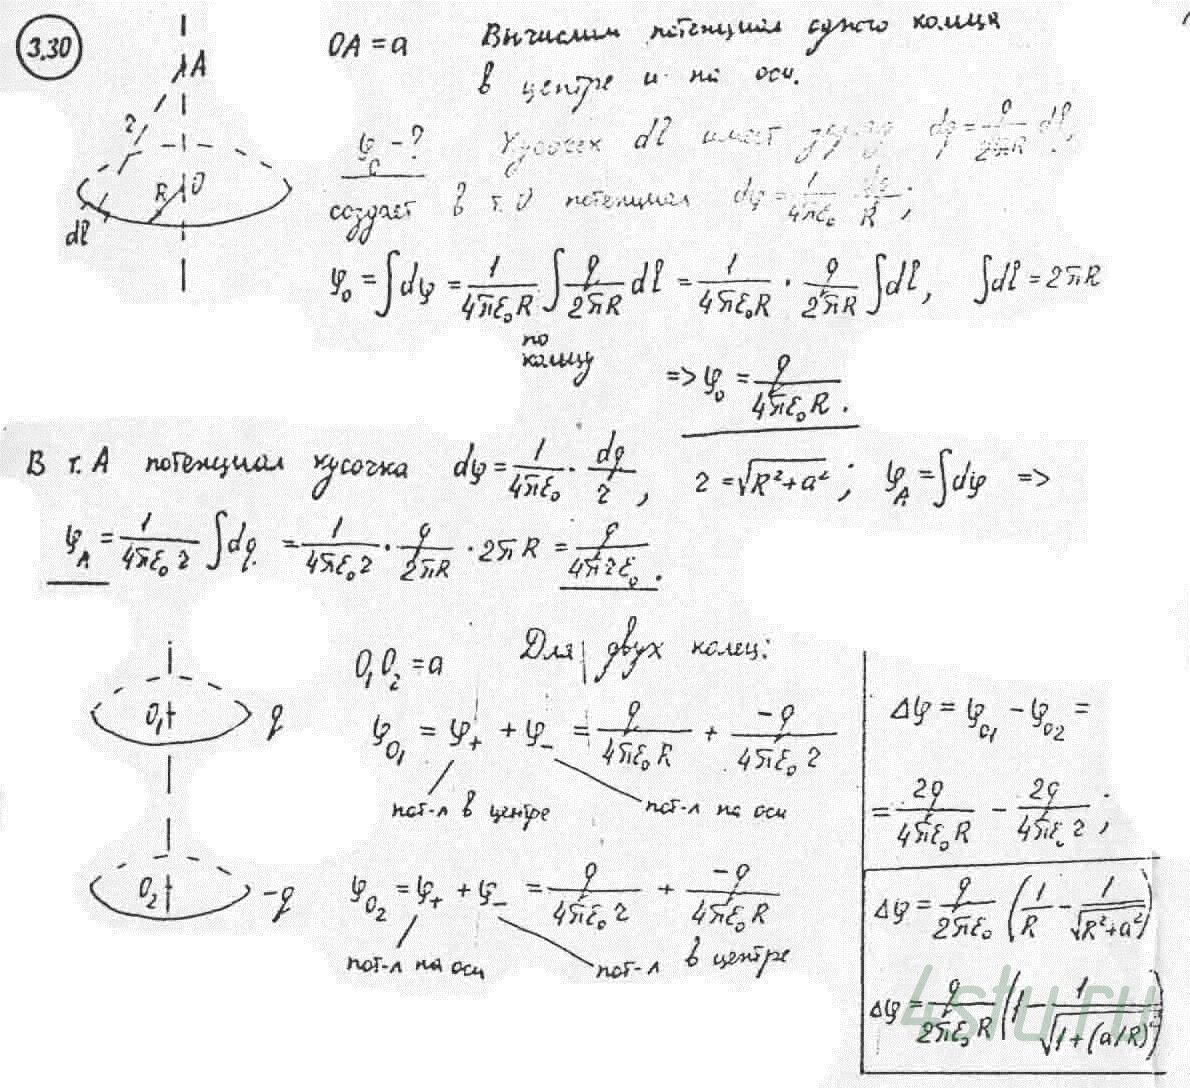 3.30
A
r
R
O
dl
OA = a
Вычислим потенциал одного кольца
в центре и на оси.
φ_0 - ?
Кусочек dl имеет заряд dq = q/(2πR) dl,
создает в т. O потенциал dφ = 1/(4πε₀) · dq/R;
φ₀ = ∫dφ = 1/(4πε₀R) ∫ q/(2πR) dl = 1/(4πε₀R) · q/(2πR) ∫dl, ∫dl = 2πR
по
кольцу
=> φ₀ = q/(4πε₀R).
В т. A потенциал кусочка dφ = 1/(4πε₀) · dq/r, r = √(R²+a²); φ_A = ∫dφ =>
φ_A = 1/(4πε₀r) ∫dq = 1/(4πε₀r) · q/(2πR) · 2πR = q/(4πrε₀).
O₁
q
O₂
-q
O₁O₂ = a
Для двух колец:
φ_O₁ = φ₊ + φ₋ = q/(4πε₀R) + -q/(4πε₀r)
пот-л в центре
пот-л на оси
φ_O₂ = φ₊ + φ₋ = q/(4πε₀r) + -q/(4πε₀R)
пот-л на оси
пот-л в центре
Δφ = φ_O₁ - φ_O₂ =
= 2q/(4πε₀R) - 2q/(4πε₀r);
Δφ = q/(2πε₀) (1/R - 1/√(R²+a²))
Δφ = q/(2πε₀R) (1 - 1/√(1+(a/R)²))
4stu.ru